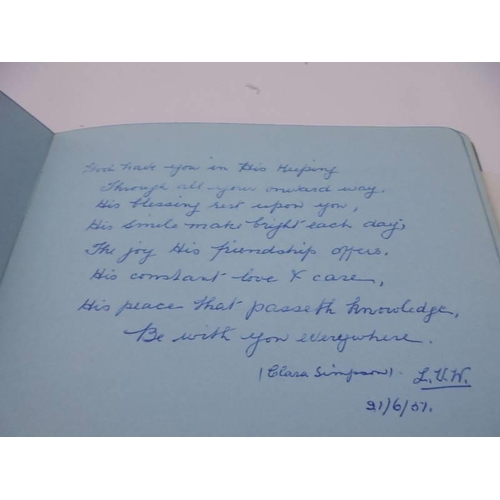 God have you in His keeping
Through all your onward way,
His blessing rest upon you,
His smile make bright each day,
The joy His friendship offers.
His constant love & care,
His peace that passeth knowledge,
Be with you everywhere.
(Clara Simpson). L.V.W.
21/6/51.